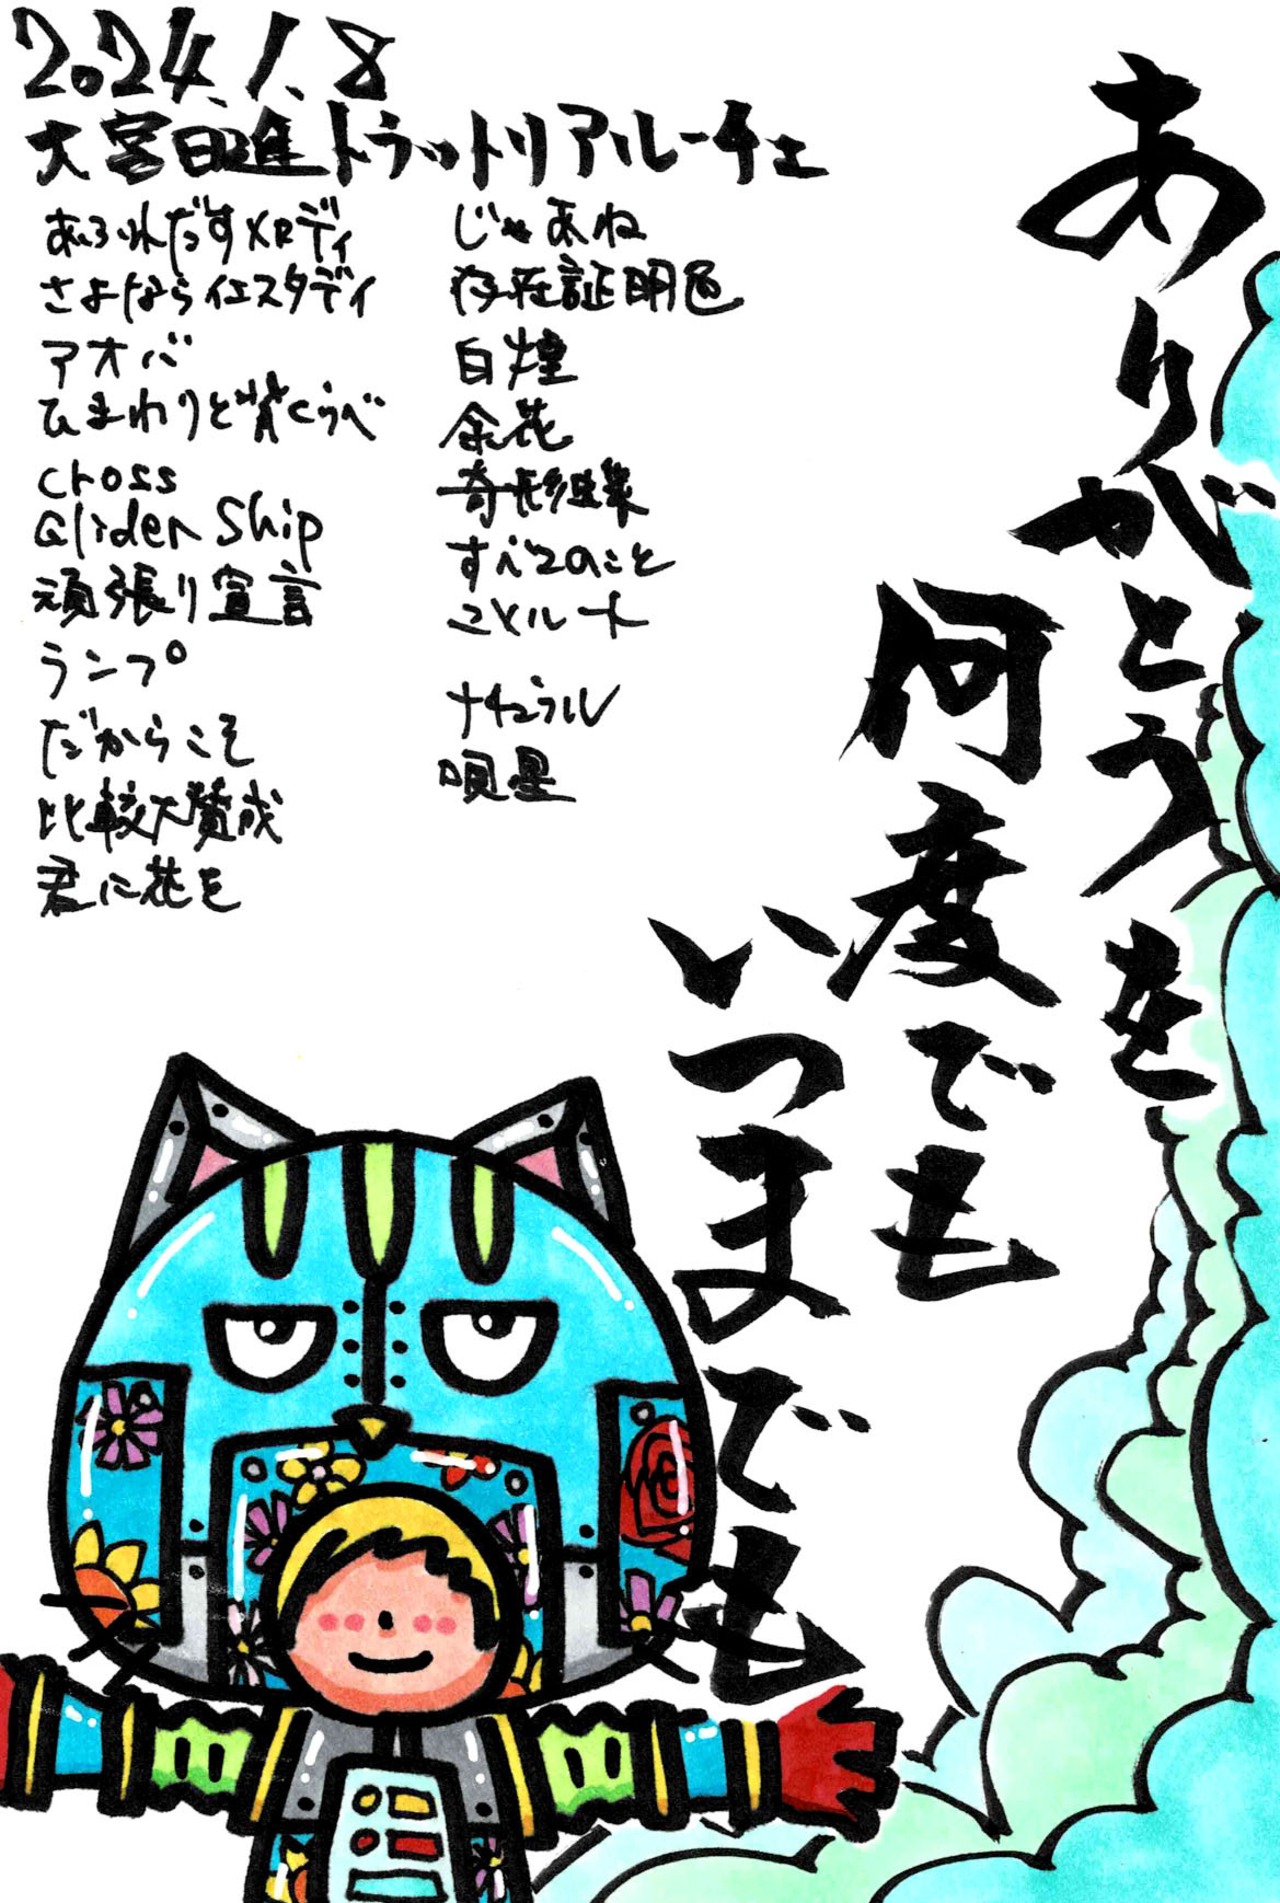 2024.1.8
大宮日進トラットリアルーチェ
あふれだすメロディ
さよならイエスタデイ
アオバ
ひまわりと背くらべ
cross
Glider Ship
頑張り宣言
ランプ
だからこそ
比較大賛成
君に花を
じゃあね
存在証明色
白煌
余花
奇形継衆
すべてのこと
ことルート
ナチュラル
唄星
ありがとうを
何度でも
いつまでも